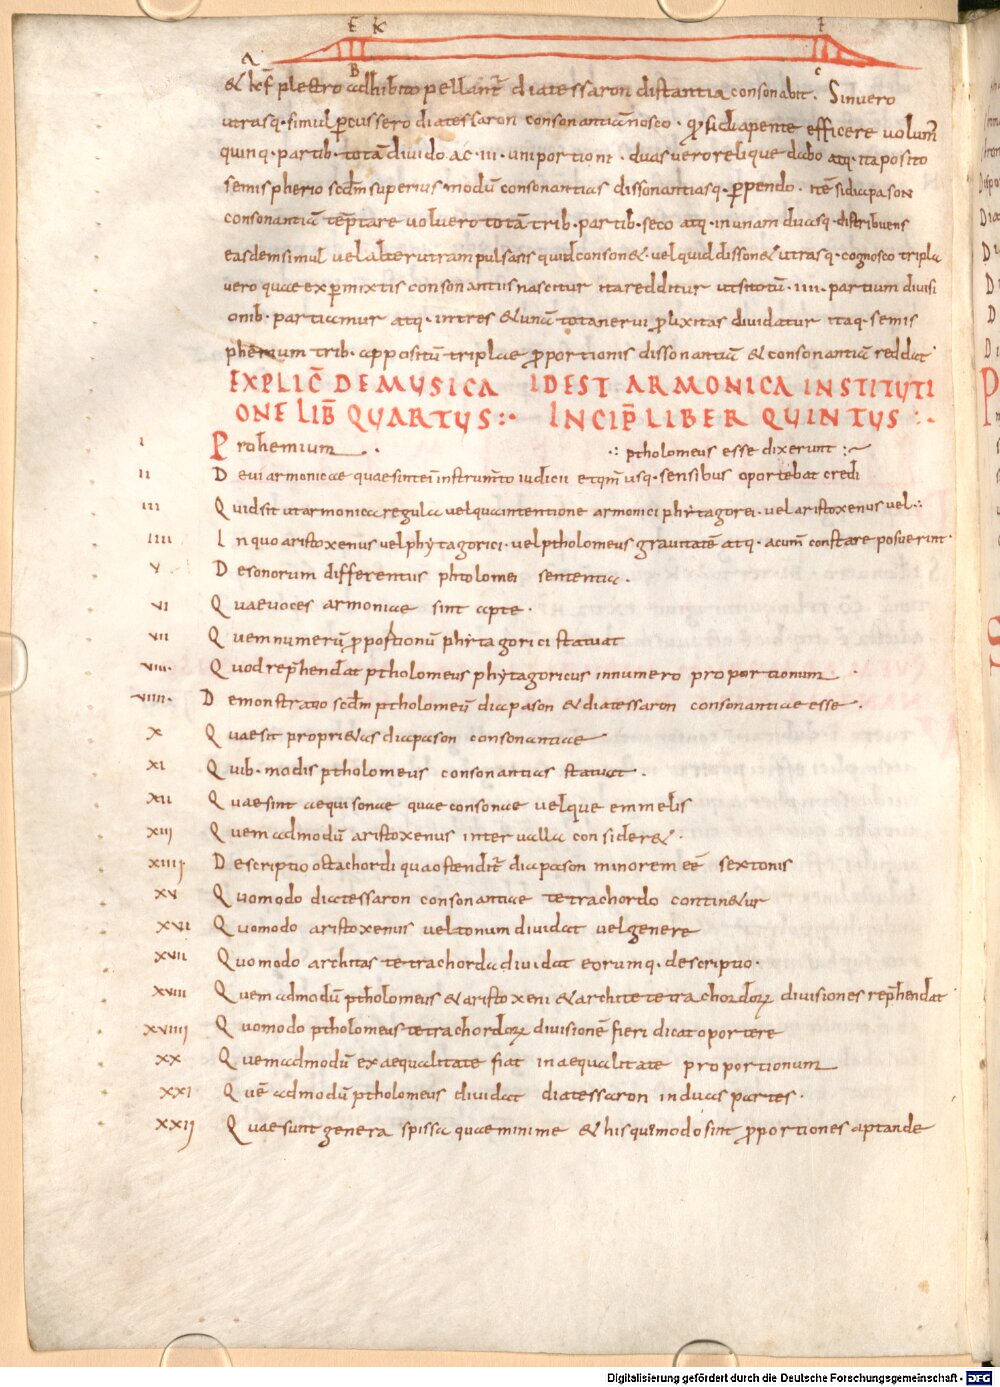 E K F
A B C
& kcf̄ plectro adhibito pellant̄ diatessaron distantia consonabit. Sinuero
utrasq· simul pcussero diatessaron consonantiā nosco· qđ si diapente efficere uolum̄
quinq· partib· totā diuido ac ·III· uni portioni · duas uero relique dabo atq· ita posito
semispherio scd̄m superius modū consonantias dissonantiasq· ꝑpendo· Itē si diapason
consonantiā tēptare uoluero totā trib· partib· seco atq· in unam duasq· distribuens
easdem simul uel alterutram pulsans quid conson&· uel quid disson& utrasq· cognosco tripla
uero quae ex ꝑmixtis consonantiis nascitur ita redditur ut si totū ·IIII· partium diuisi
onib· partiamur atq· in tres & unā tota nerui ꝓlixitas diuidatur itaq· semis
pherium trib· appositū triplae ꝓportionis dissonantiā & consonantiā reddat
EXPLIC̄ DE MUSICA IDEST ARMONICA INSTITUTI
ONE LIB̄ QUARTUS:· INCIP̄ LIBER QUINTUS :·
I Prohemium. ·: ptholomeus esse dixerunt :~
II De ui armonicae quae sint ei instrum̄to iudicii et qm̄ usq· sensibus oportebat credi
III Quid sit ut armonica regula uel qua intentione armonici phytagorei· uel aristoxenus uel·:
IIII In quo aristoxenus uel phytagorici· uel ptholomeus grauitatē atq· acum̄ constare posuerint·
V De sonorum differentiis phtolomei sententia·
VI Quae uoces armoniae sint apte·
VII Quem numerū ꝓportionū phytagorici statuat
VIII· Quod rep̄hendat ptholomeus phytagoricus in numero proportionum
VIIII· Demonstratio scd̄m ptholomeū diapason & diatessaron consonantiae esse·
X Quae sit propri&as diapason consonantiae
XI Quib· modis ptholomeus consonantias statuat·
XII Quae sint aequisonae quae consonae uel que emmelis
XIII Quem admodū aristoxenus interualla consider&·
XIIII Descriptio octachordi qua ostendit̄ diapason minorem eē sex tonis
XV Quomodo diatessaron consonantiae tetrachordo contin&ur
XVI Quomodo aristoxenus uel tonum diuidat uel genere
XVII Quomodo architas tetrachorda diuidat eorumq· descriptio·
XVIII Quem admodū ptholomeus & aristoxeni & archite tetrachordoꝝ diuisiones rep̄hendat
XVIIII Quomodo ptholomeus tetrachordoꝝ diuisionē fieri dicat oportere
XX Quem admodū ex aequalitate fiat inaequalitate proportionum
XXI Quē admodū ptholomeus diuidat diatessaron in duas partes·
XXII Quae sunt genera spissa quae minime & his quēmodo sint ꝓportiones aptande
Digitalisierung gefördert durch die Deutsche Forschungsgemeinschaft - DFG